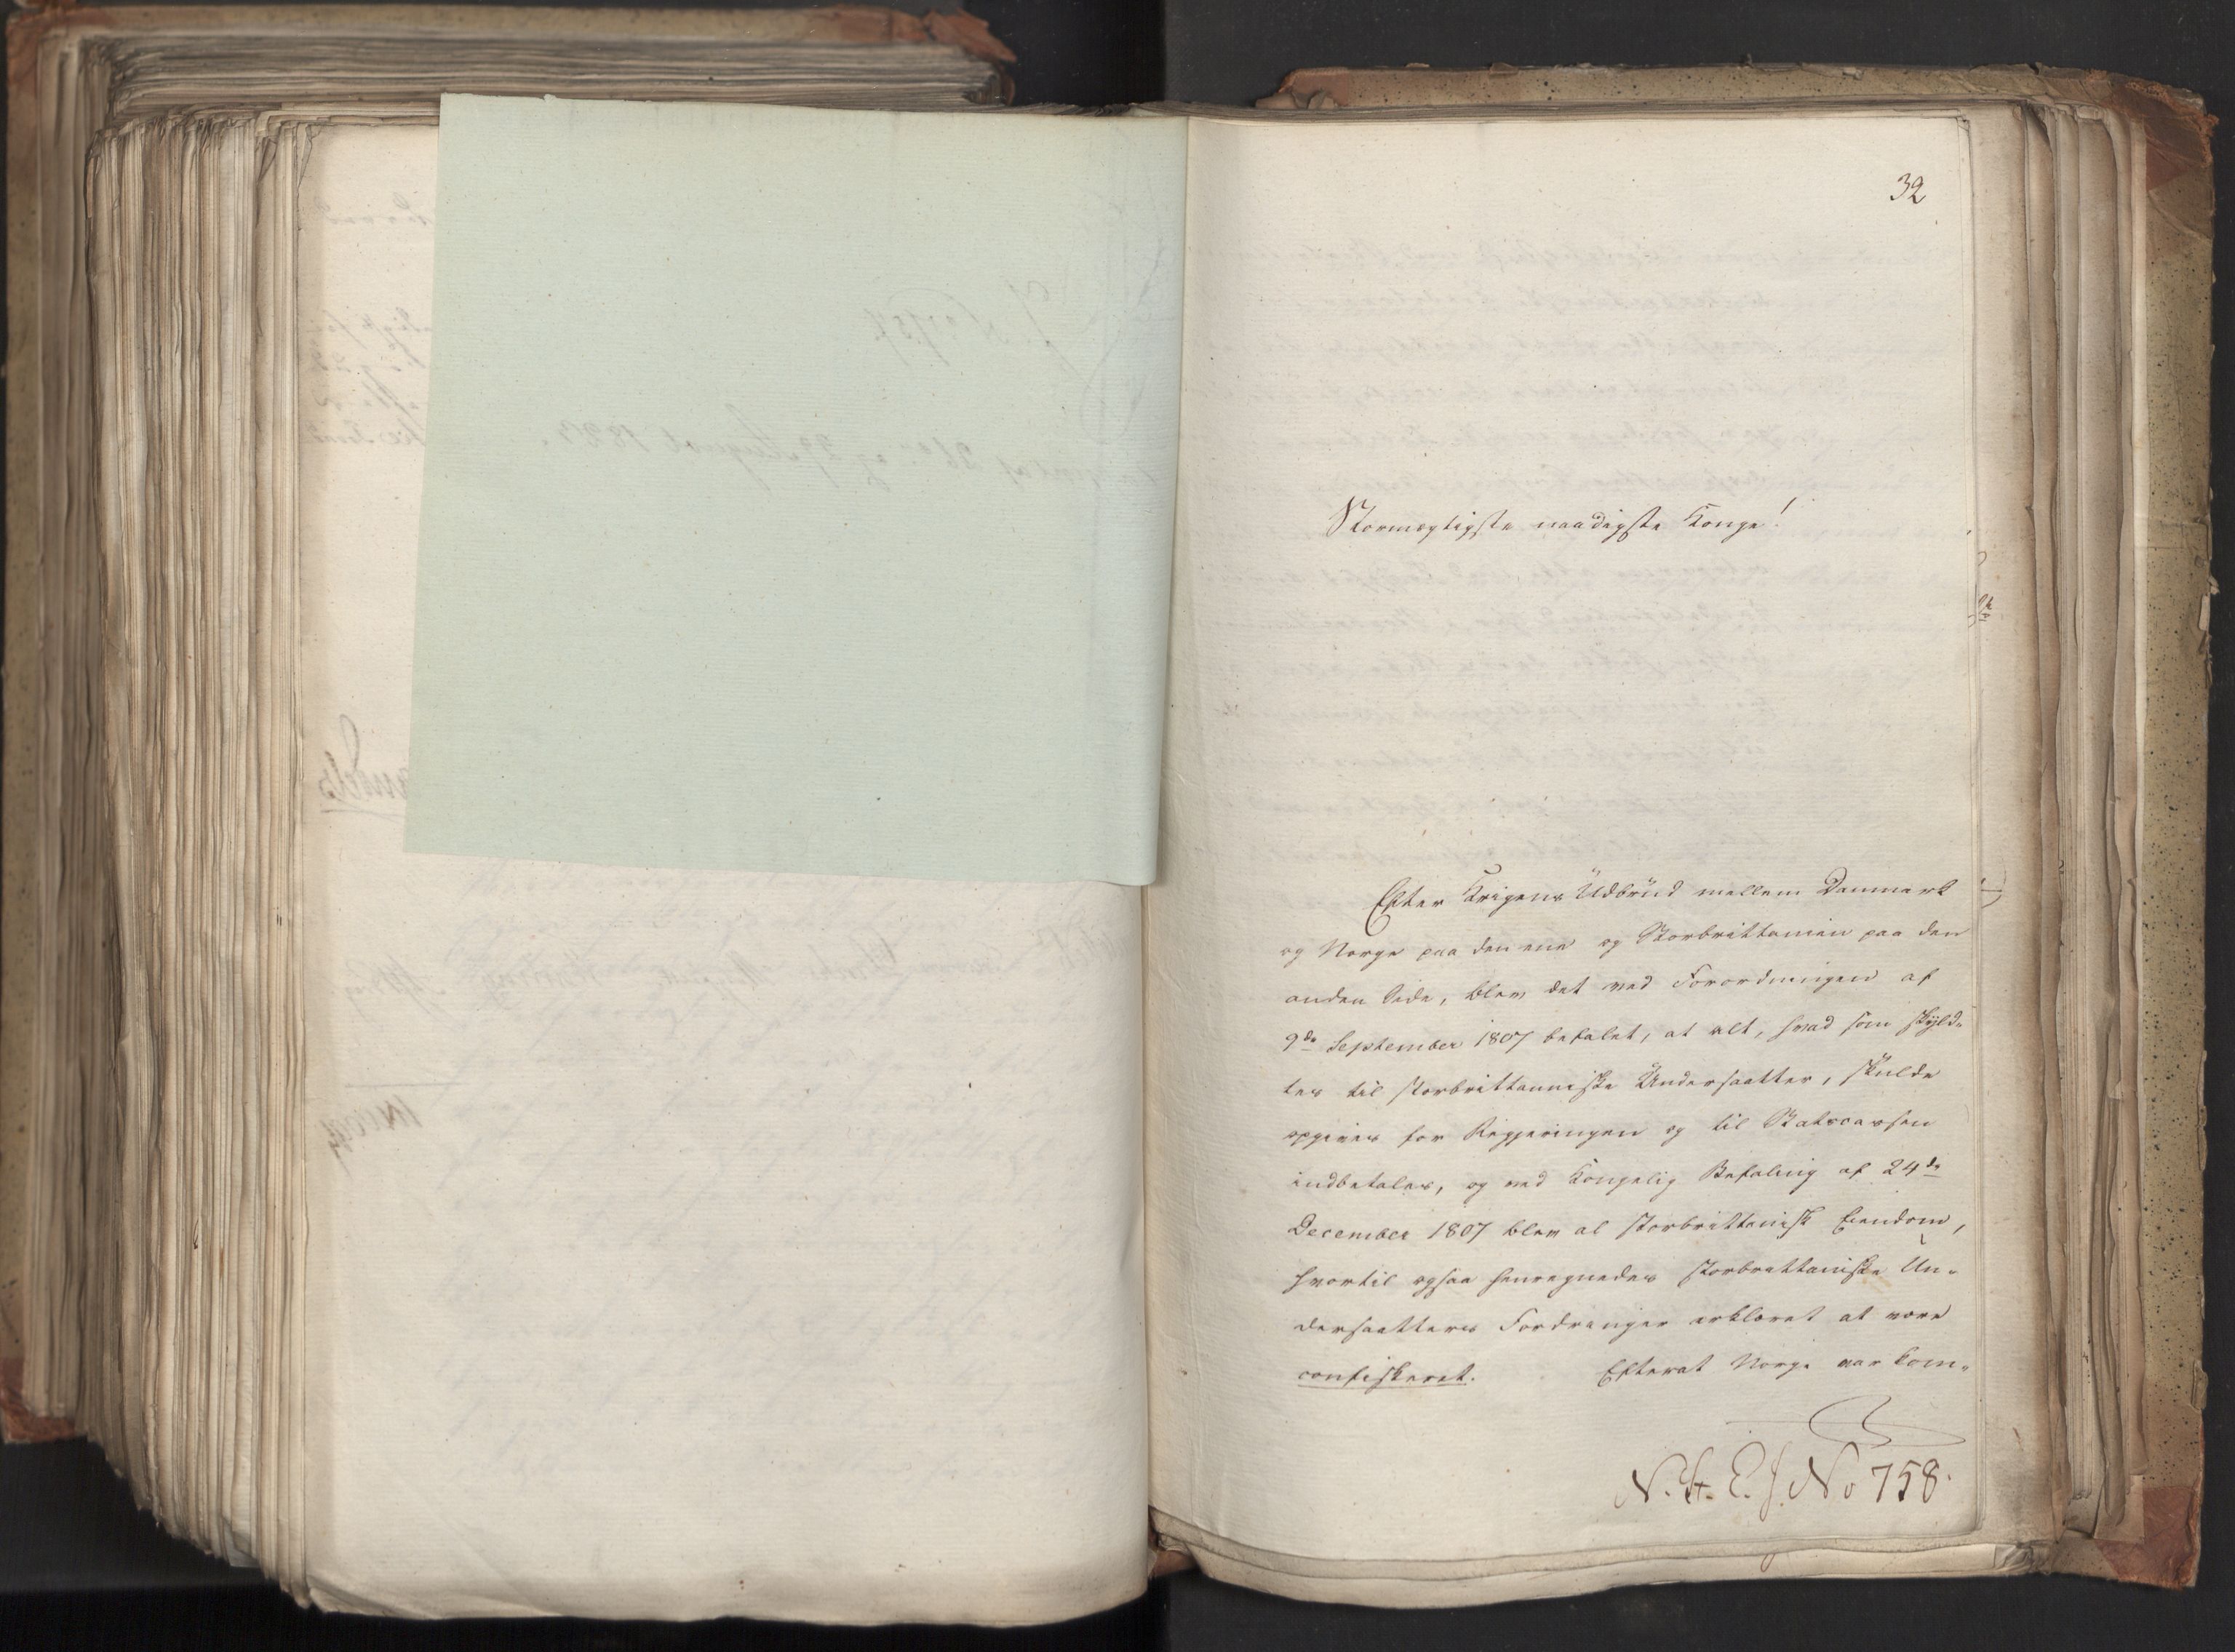 32
Stormægtigste naadigste Konge!
Efter Krigens Udbrud mellem Danmark
og Norge paa den ene og Storbrittanien paa den
anden Side, blev det ved Forordningen af
9de September 1807 befalet, at alt, hvad som skyld-
tes til storbrittanniske Undersaatter, skulde
opgives for Regjeringen og til Statscassen
indbetales, og ved Kongelig Befaling af 24de
December 1807 blev al storbrittanisk Eiendom,
hvortil ogsaa henregnedes storbrittaniske Un-
dersaatters Fordringer erklæret at være
confiskeret. Efterat Norge var kom-
N. H. E. J. No 758.